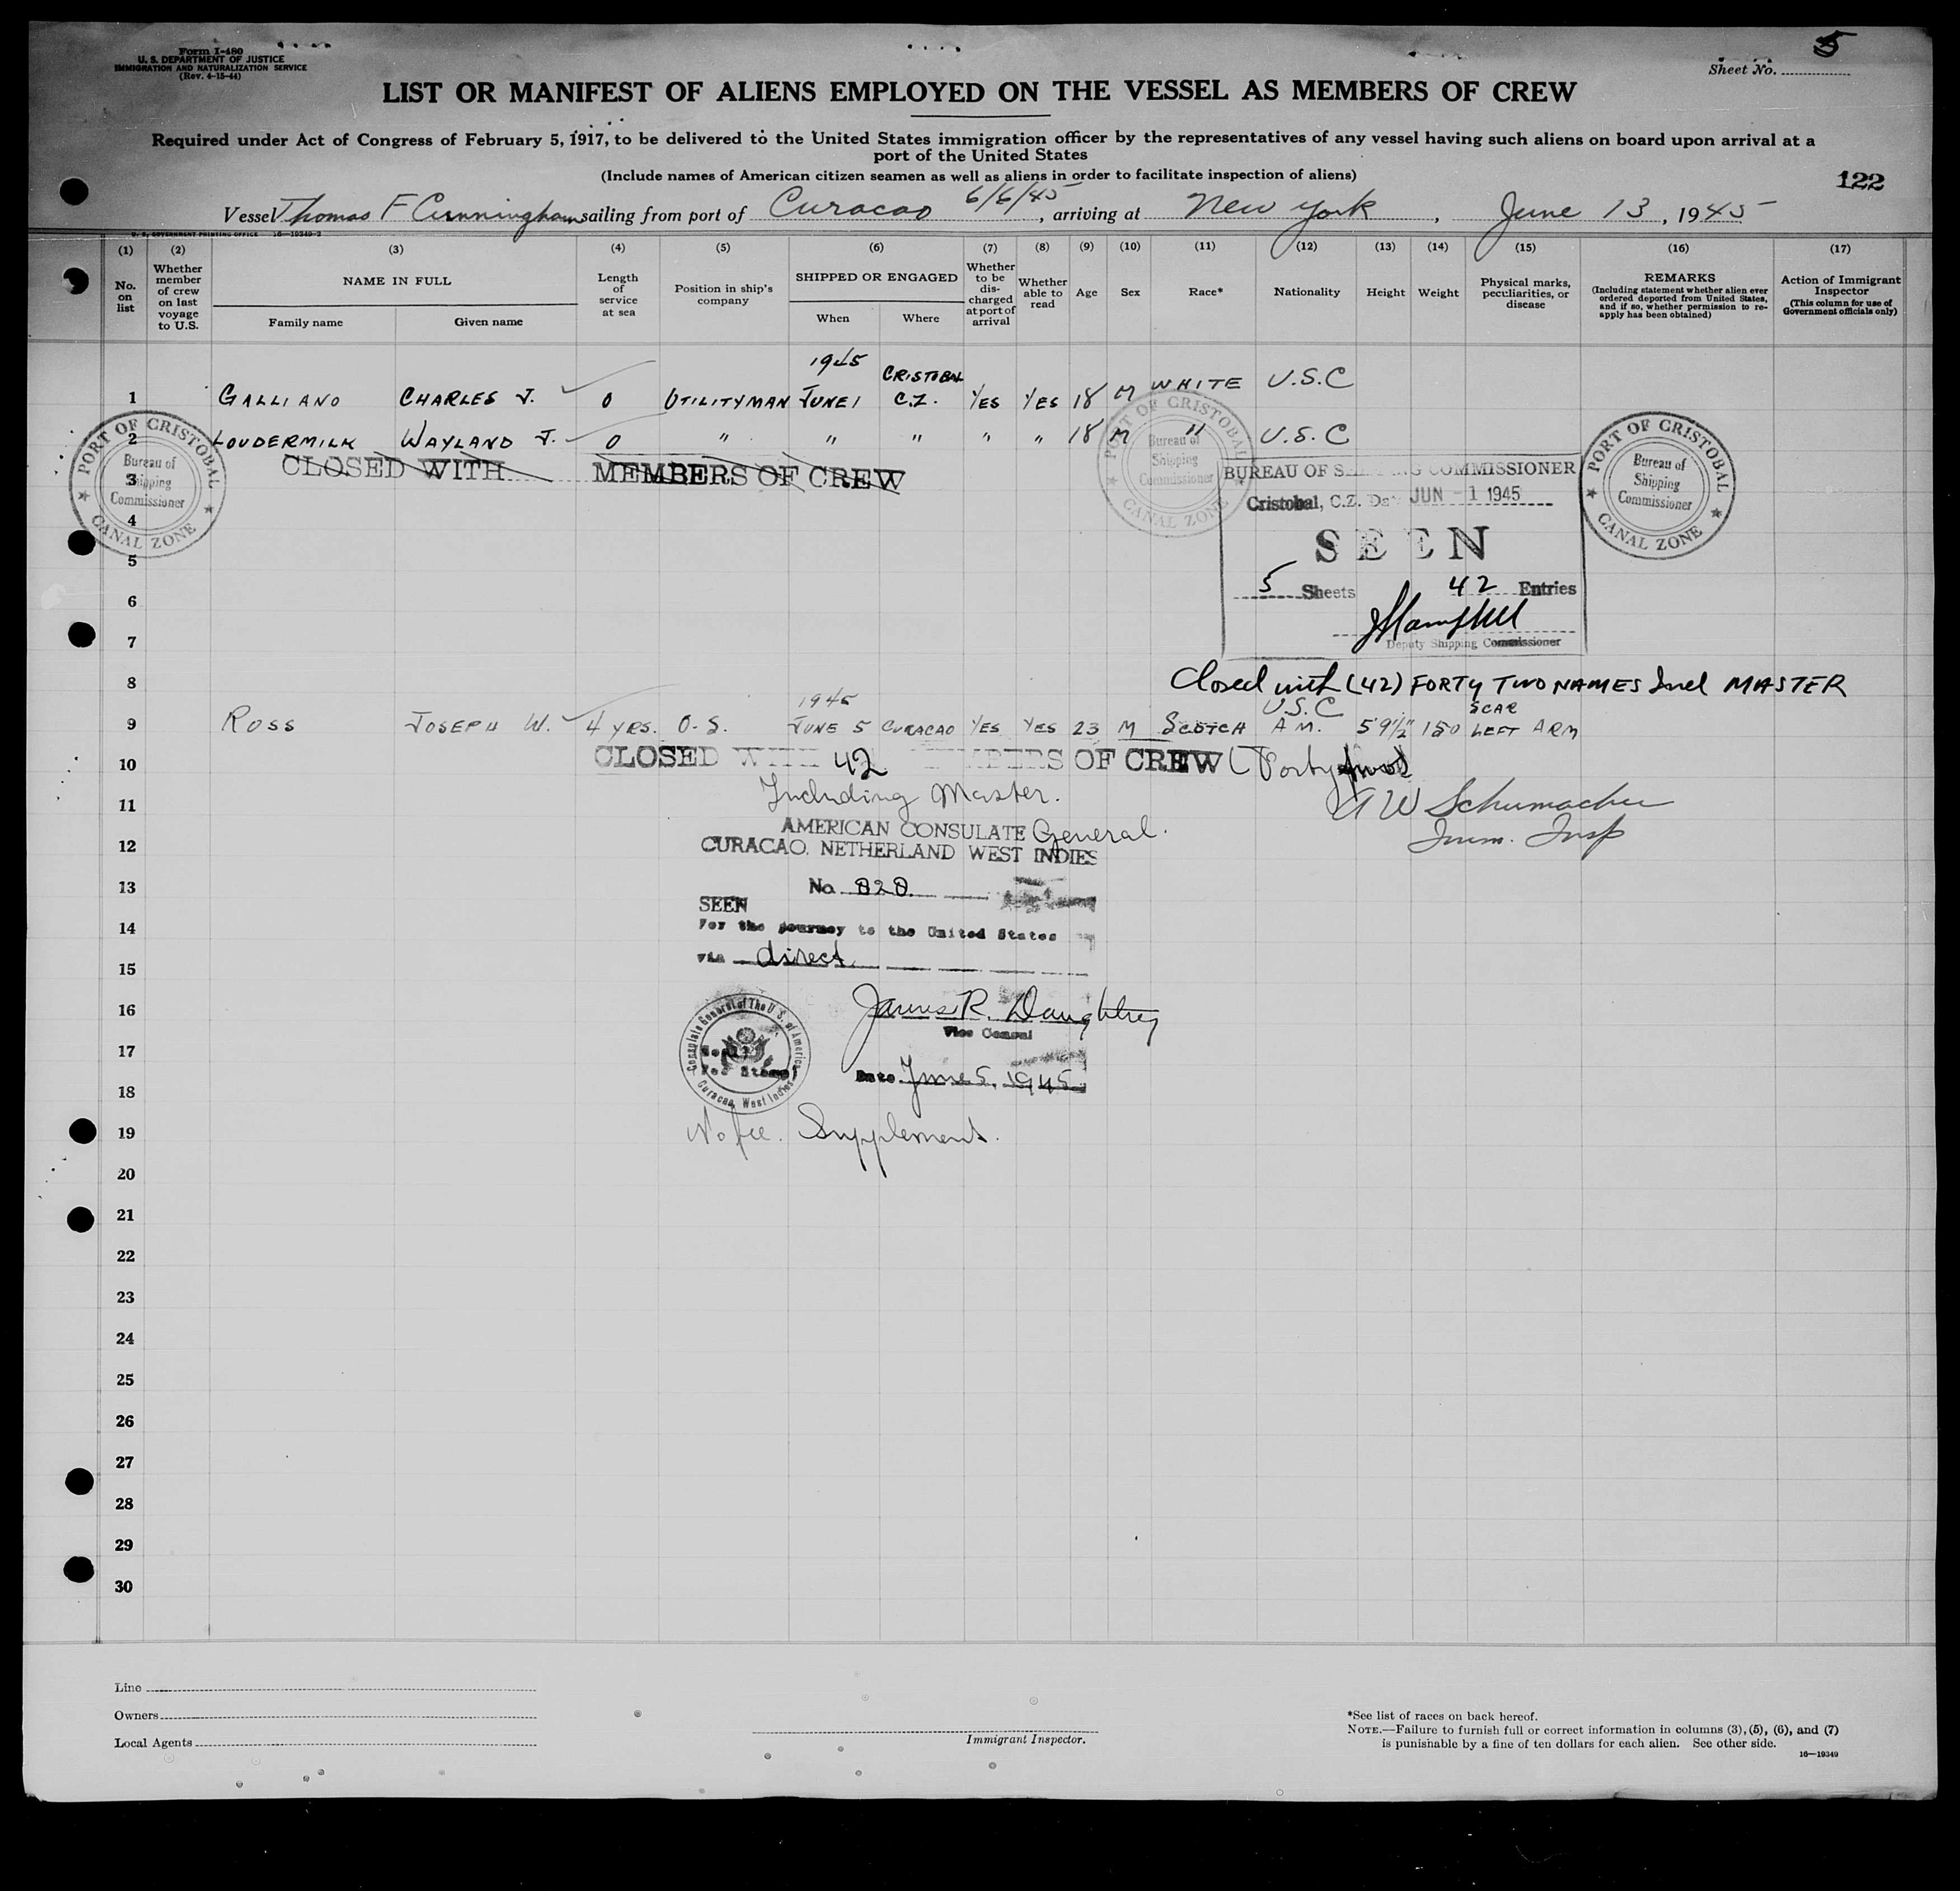 Form I-480
U. S. DEPARTMENT OF JUSTICE
IMMIGRATION AND NATURALIZATION SERVICE
(Rev. 4-15-44)
5
Sheet No.
LIST OR MANIFEST OF ALIENS EMPLOYED ON THE VESSEL AS MEMBERS OF CREW
Required under Act of Congress of February 5, 1917, to be delivered to the United States immigration officer by the representatives of any vessel having such aliens on board upon arrival at a
port of the United States
(Include names of American citizen seamen as well as aliens in order to facilitate inspection of aliens)
122
Vessel Thomas F Cunningham sailing from port of Curacao 6/6/45, arriving at New York, June 13, 1945
U. S. GOVERNMENT PRINTING OFFICE 16-19349-2
(1) (2) (3) (4) (5) (6) (7) (8) (9) (10) (11) (12) (13) (14) (15) (16) (17)
No. on list
Whether member of crew on last voyage to U.S.
NAME IN FULL
Family name
Given name
Length of service at sea
Position in ship's company
SHIPPED OR ENGAGED
When
Where
Whether to be discharged at port of arrival
Whether able to read
Age
Sex
Race*
Nationality
Height
Weight
Physical marks, peculiarities, or disease
REMARKS
(Including statement whether alien ever ordered deported from United States, and if so, whether permission to re-apply has been obtained)
Action of Immigrant Inspector
(This column for use of Government officials only)
1 GALLIANO CHARLES J. 0 UTILITYMAN 1945 JUNE 1 CRISTOBAL C.Z. YES YES 18 M WHITE U.S.C
2 LOUDERMILK WAYLAND J. 0 " " " " " 18 M " U.S.C
PORT OF CRISTOBAL
Bureau of
Shipping
Commissioner
CANAL ZONE
3 CLOSED WITH MEMBERS OF CREW
PORT OF CRISTOBAL
Bureau of
Shipping
Commissioner
CANAL ZONE
BUREAU OF SHIPPING COMMISSIONER
Cristobal, C.Z. Date JUN -1 1945
SEEN
5 Sheets 42 Entries
Deputy Shipping Commissioner
PORT OF CRISTOBAL
Bureau of
Shipping
Commissioner
CANAL ZONE
4
5
6
7
8 Closed with (42) FORTY TWO NAMES Incl MASTER
9 ROSS JOSEPH W. 4 YRS. O.S. 1945 JUNE 5 CURACAO YES YES 23 M SCOTCH U.S.C AM. 5'9½" 150 SCAR LEFT ARM
10 CLOSED WITH 42 MEMBERS OF CREW (Forty two)
11 Including Master.
A W Schumacher
Imm. Insp
AMERICAN CONSULATE General.
12 CURACAO, NETHERLAND WEST INDIES
13 No. 820
SEEN
14 For the journey to the United States
15 via direct
16 James R. Daughtry
Vice Consul
17
Consulate General of The U.S. of America
Curacao, West Indies
Date June 5, 1945
18
19 No fee. Supplement.
20
21
22
23
24
25
26
27
28
29
30
Line
Owners
Local Agents
Immigrant Inspector.
*See list of races on back hereof.
NOTE.—Failure to furnish full or correct information in columns (3), (5), (6), and (7)
is punishable by a fine of ten dollars for each alien. See other side.
16—19349